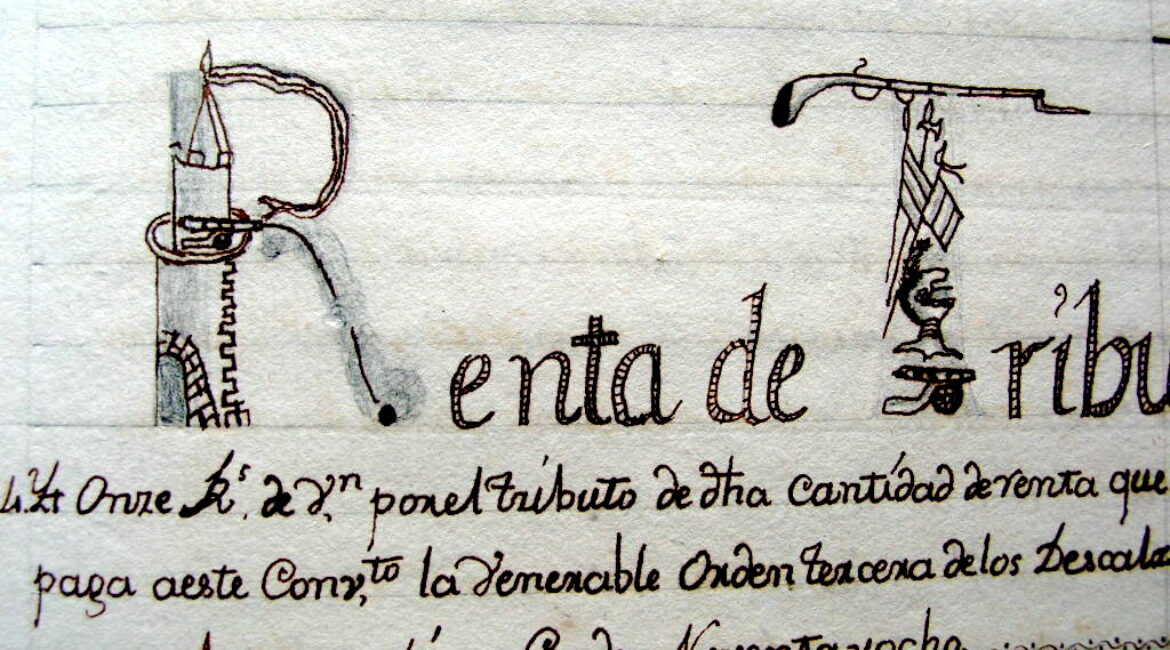 Renta de Tribu
Onze Rs. de Vn por el tributo de dha Cantidad de renta que
paga aeste Convto la Venerable Orden tercera delos Descalz